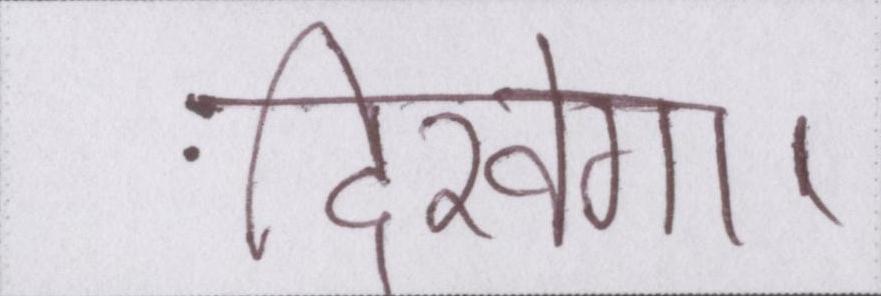 दिखेगा।